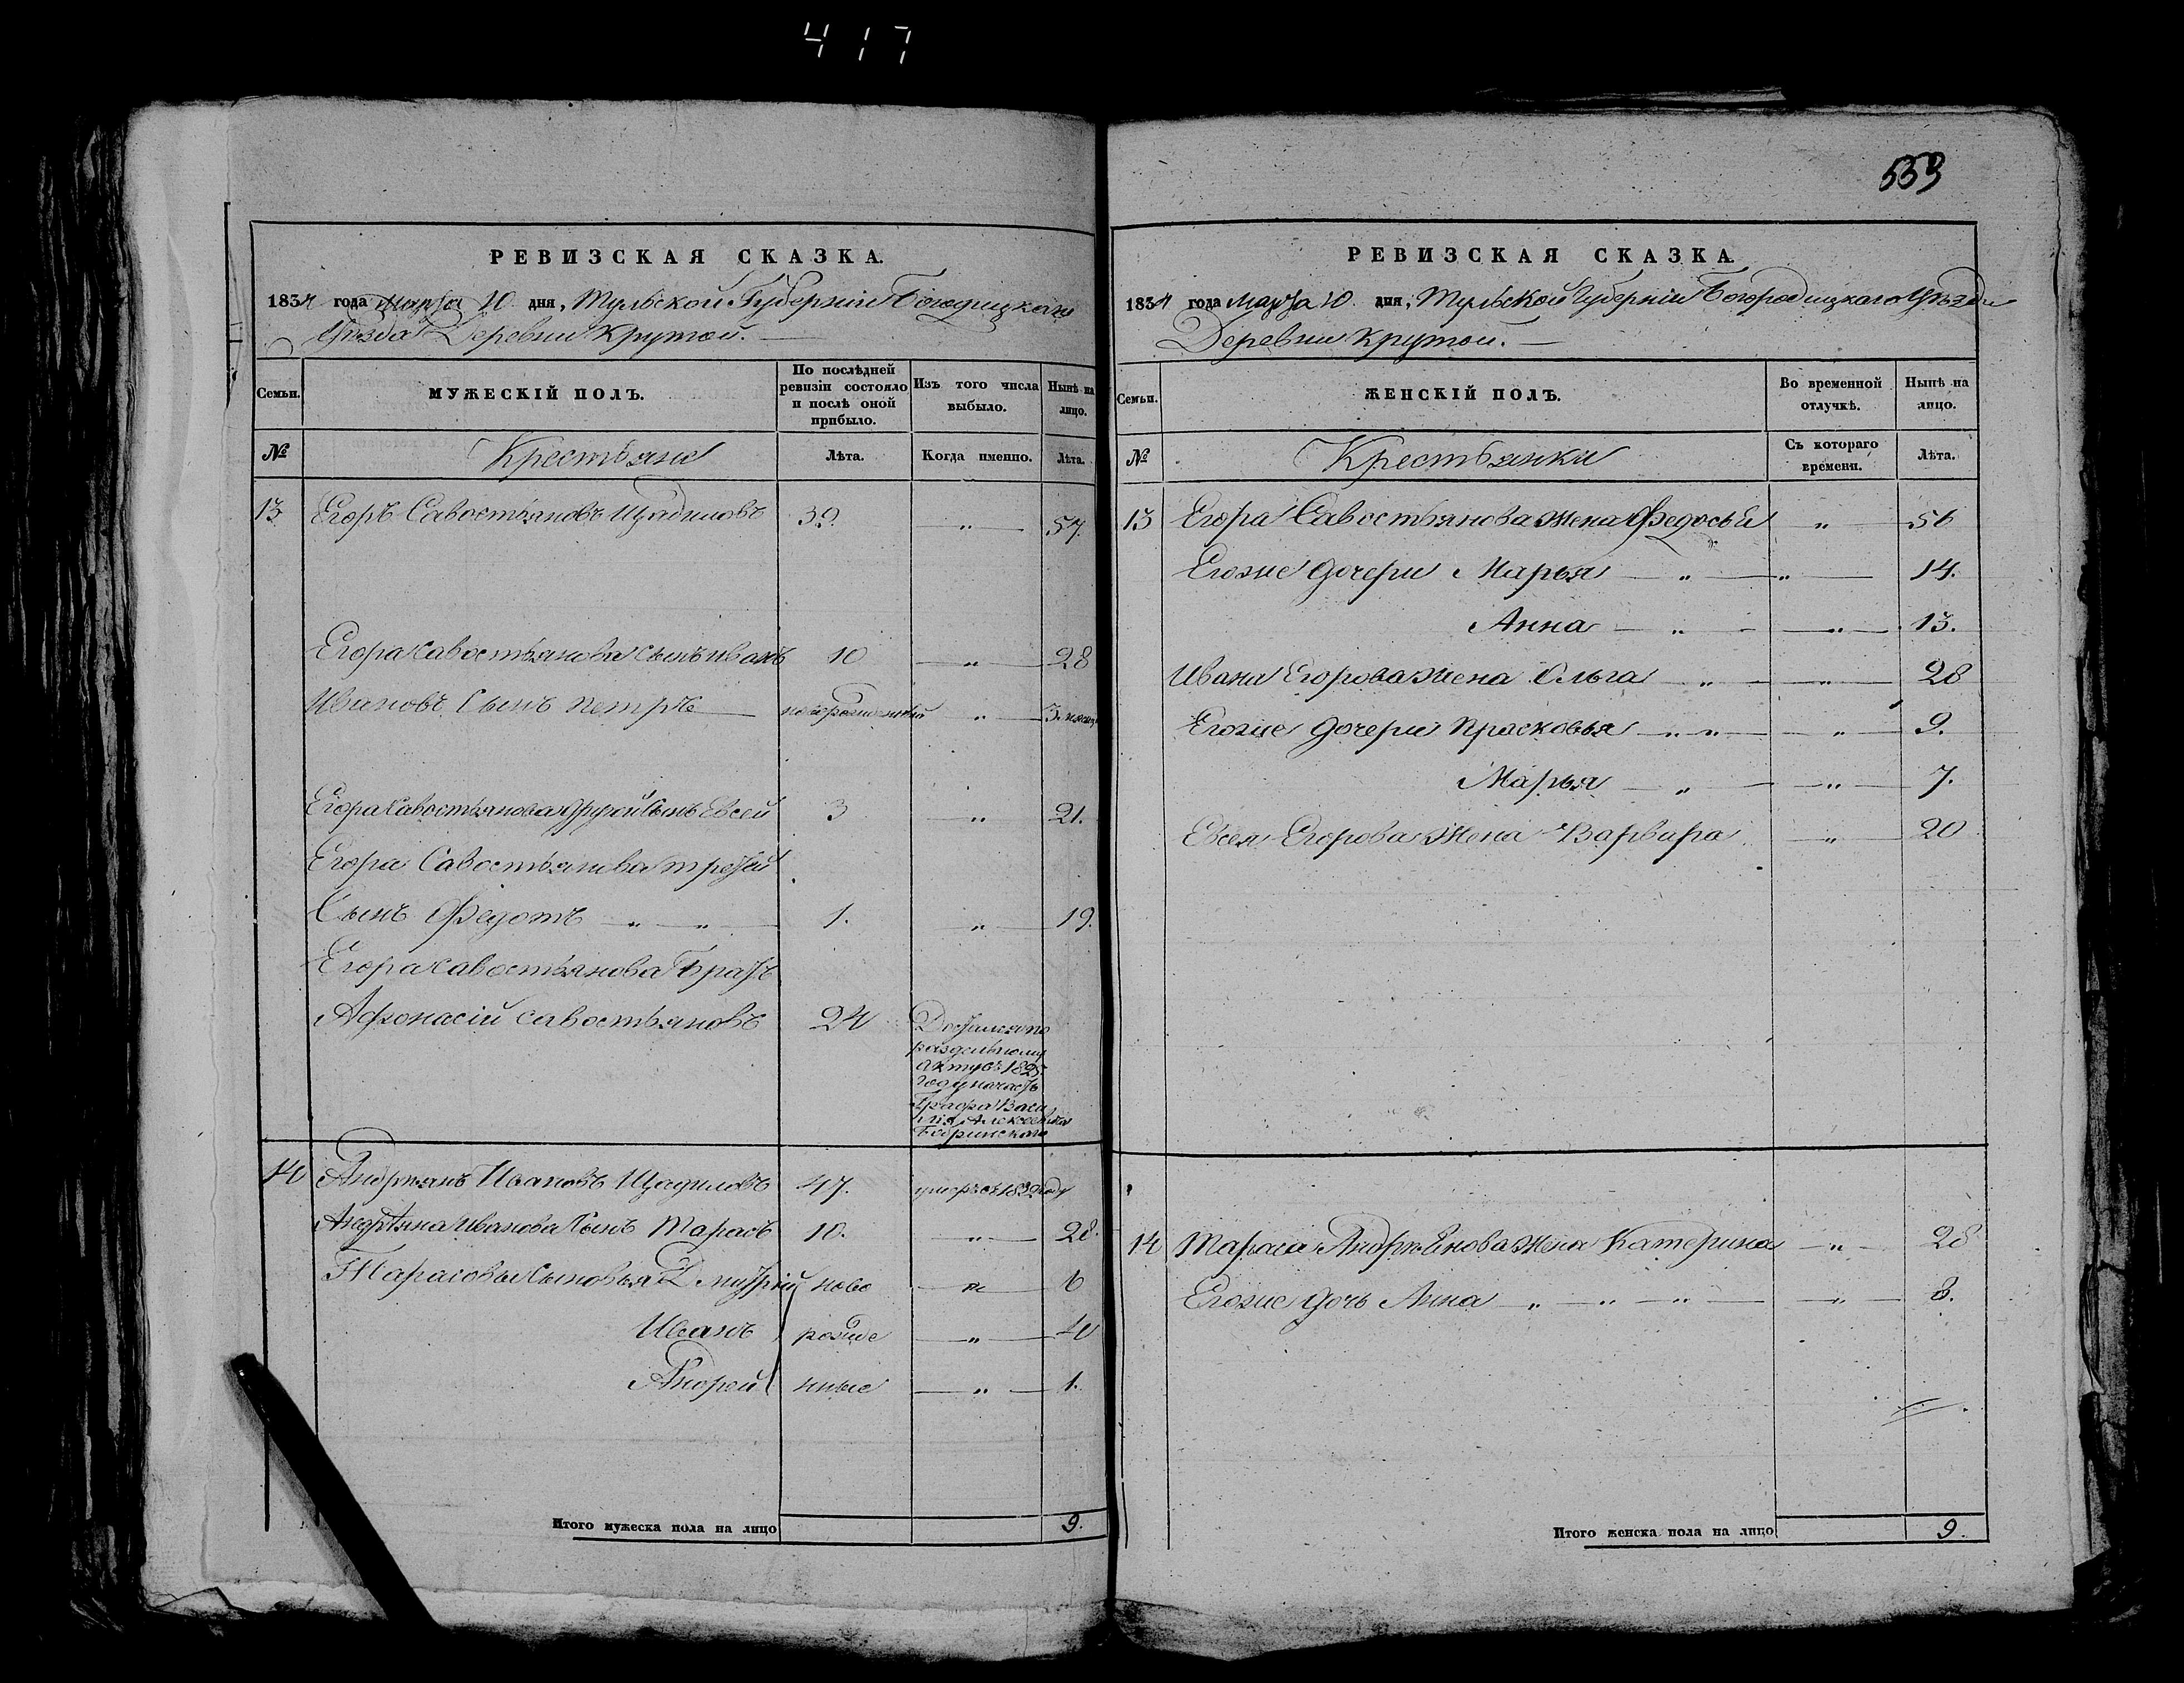 417
РЕВИЗСКАЯ СКАЗКА.
1834 года Марта 10 дня, Тульской Губерніи Богородицкаго
Уѣзда Деревни Крутой.
Семьи.
МУЖЕСКІЙ ПОЛЪ.
По послѣдней ревизіи состояло и послѣ оной прибыло.
Изъ того числа выбыло.
Нынѣ на лицо.
№
Крестьяне
Лѣта.
Когда именно.
Лѣта.
13 Егоръ Савостьяновъ Щадиловъ 39 „ 57.
Егора Савостьянова сынъ Иванъ 10 „ 28
Ивановъ Сынъ Петръ новорожденный „ 3. месяц.
Егора Савостьянова другой Сынъ Евсей 3 „ 21.
Егора Савостьянова третій
Сынъ Федотъ „ „ 1. „ 19.
Егора Савостьянова Братъ
Афонасій Савостьяновъ 24 Достался по
раздельному
акту въ 1825
году на часть
Графа Васи
лія Алексеевича
Бобринскаго
14 Андреянъ Ивановъ Щадиловъ 47. умеръ въ 1832 году
Андреяна Иванова Сынъ Тарасъ 10. „ 28.
Тарасовы Сыновья Дмитрій ново „ 6
Иванъ рожде „ 4
Андрей нные „ 1.
Итого мужеска пола на лицо 9.
553
РЕВИЗСКАЯ СКАЗКА
1834 года Марта 10 дня, Тульской Губерніи Богородицкаго Уѣзда
Деревни Крутой.
Семьи.
ЖЕНСКІЙ ПОЛЪ.
Во временной отлучкѣ.
Нынѣ на лицо.
№
Крестьянки
Съ котораго времени.
Лѣта.
13 Егора Савостьянова жена Федосья „ 56
Егоже дочери Марья „ „ 14.
Анна „ „ 13.
Ивана Егорова жена Ольга „ „ 28
Егоже дочери Прасковья „ „ „ 9.
Марья „ „ 7.
Евсея Егорова жена Варвара „ 20
14 Тараса Андреянова жена Катерина „ 28
Егоже дочь Анна „ „ „ „ 8.
Итого женска пола на лицо 9.